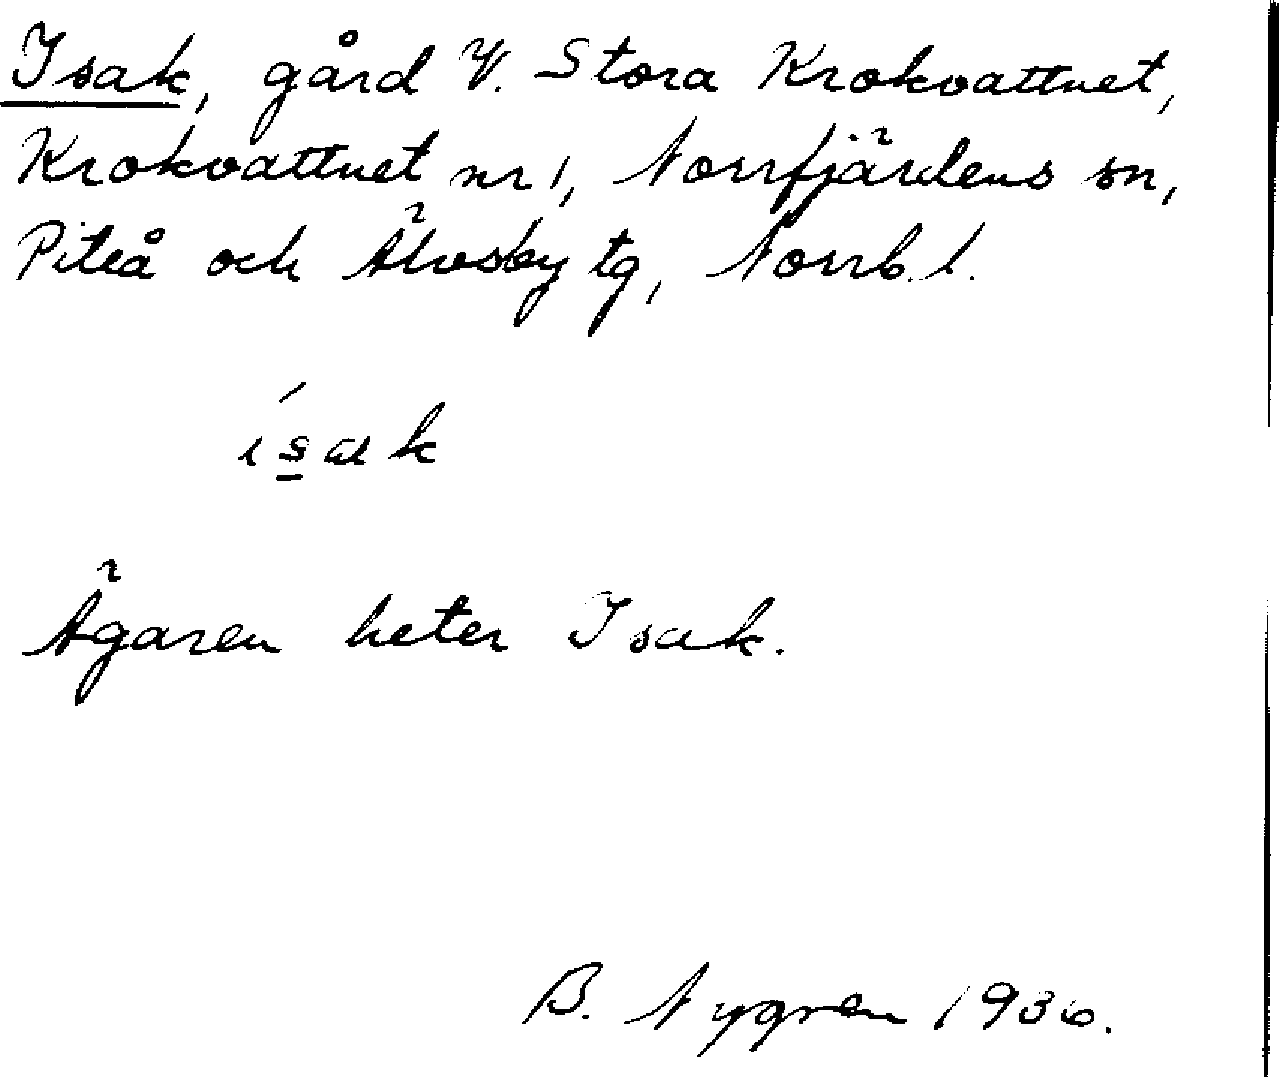 Isak, gård V. Stora Krokvattnet,
Krokvattnet nr 1, Norrfjärdens sn,
Piteå och Älvsby tg, Norrb. l.
ísak
Ägaren heter Isak.
B. Nygren 1936.